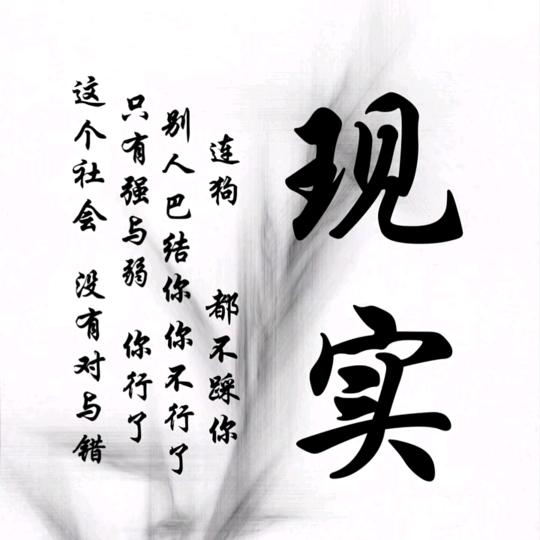 现实
这个社会 没有对与错
只有强与弱 你行了
别人巴结你你不行了
连狗 都不踩你